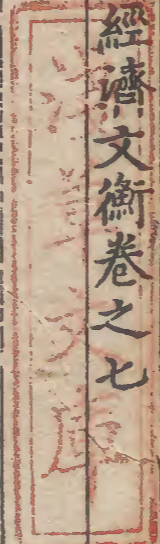 經濟文衡卷之七